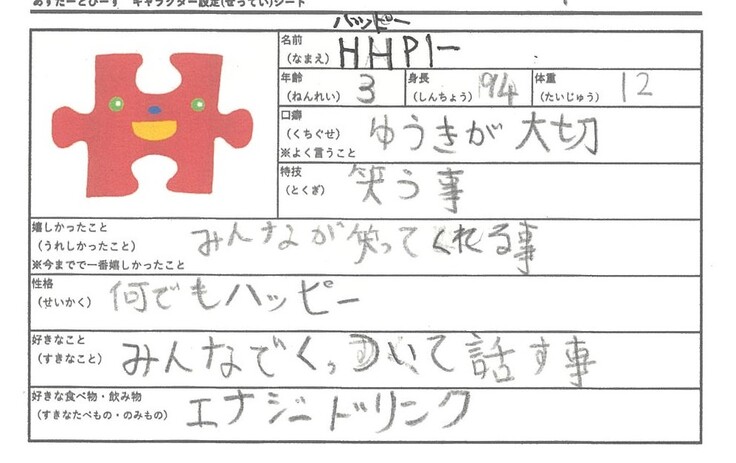 あすたーとぴーす キャラクター設定(せってい)シート
ハッピー
名前
(なまえ)
HHPI-
年齢
(ねんれい)
3
身長
(しんちょう)
94
体重
(たいじゅう)
12
口癖
(くちぐせ)
※よく言うこと
ゆうきが大切
特技
(とくぎ)
笑う事
嬉しかったこと
(うれしかったこと)
※今までで一番嬉しかったこと
みんなが笑ってくれる事
性格
(せいかく)
何でもハッピー
好きなこと
(すきなこと)
みんなでくっついて話す事
好きな食べ物・飲み物
(すきなたべもの・のみもの)
エナジードリンク